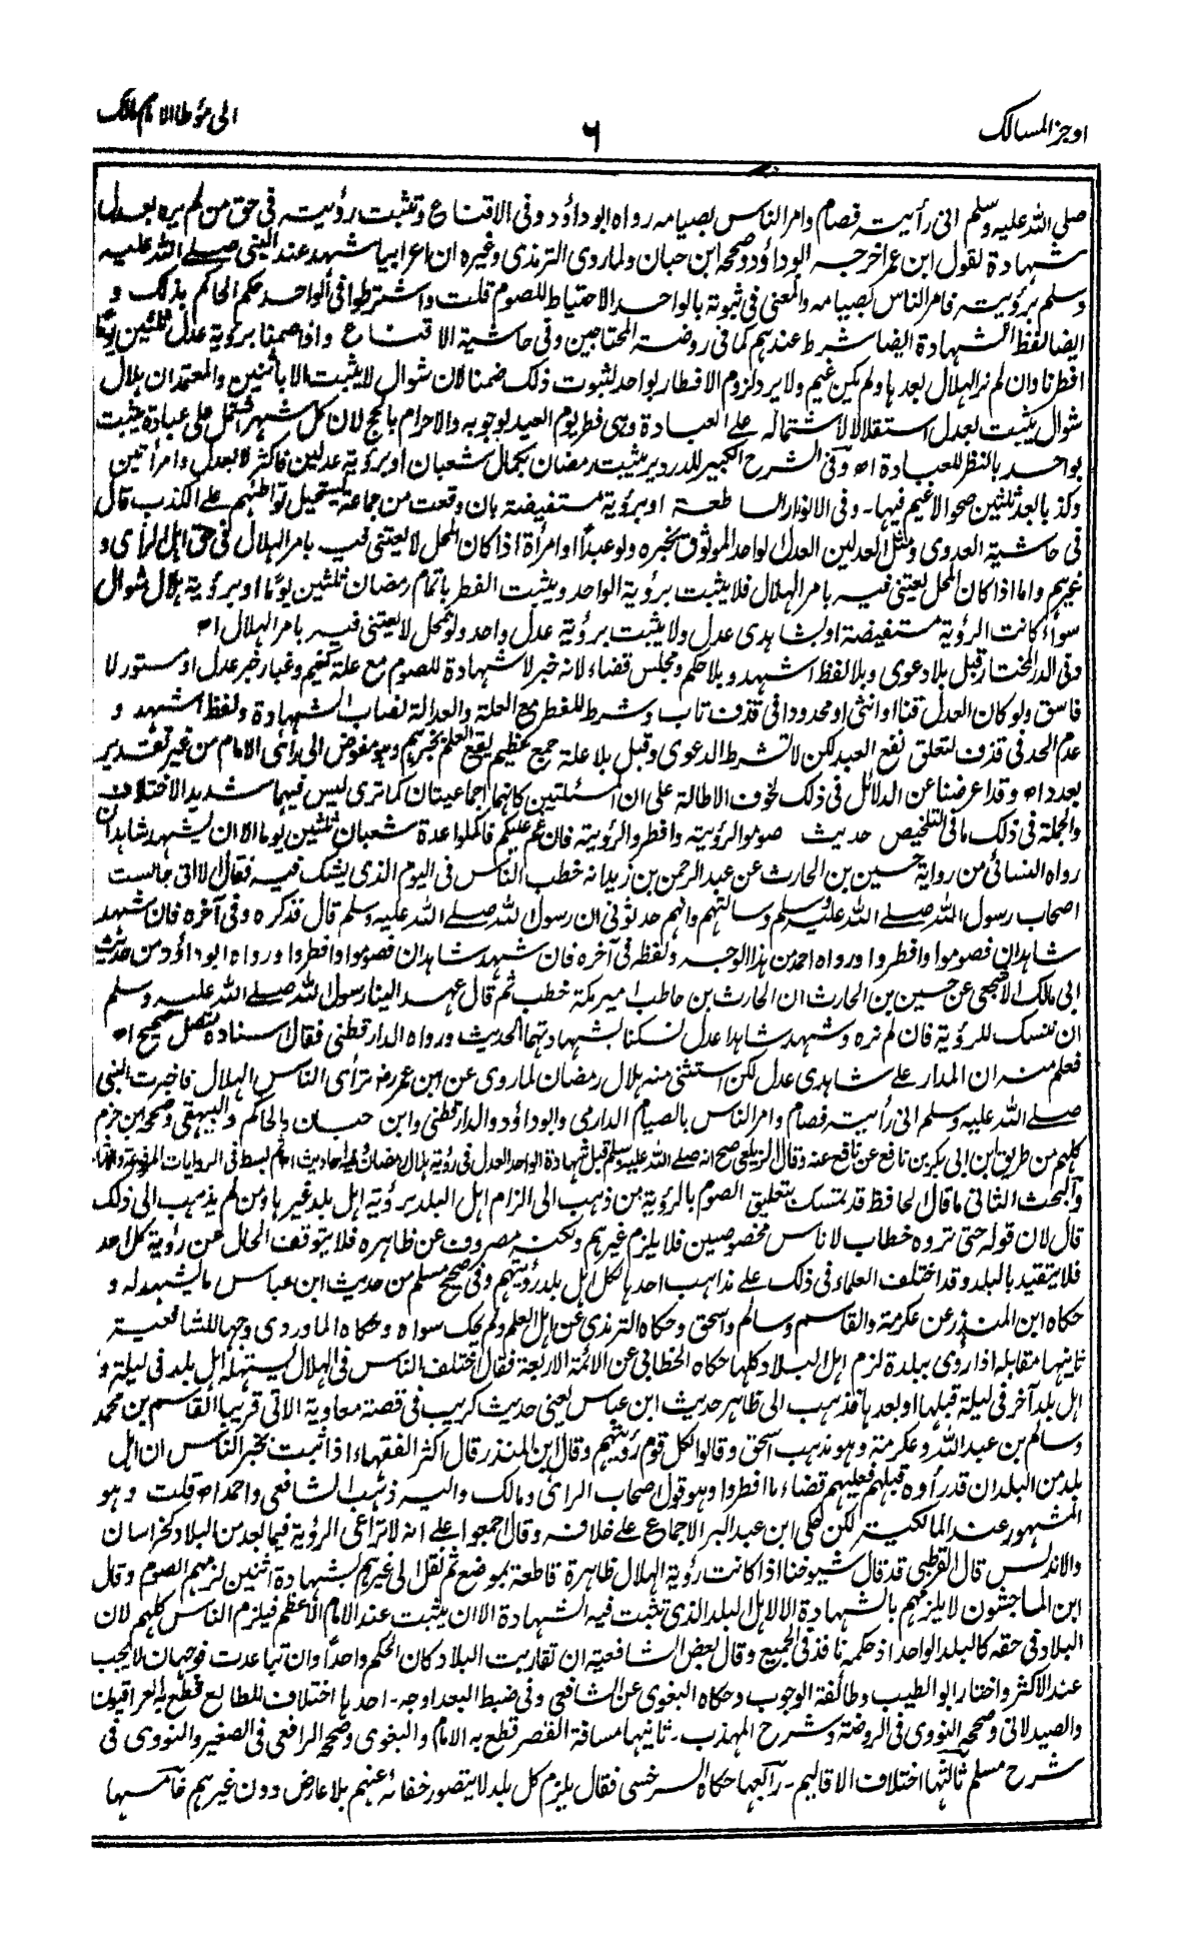 اوجز المسالك
٦
الى مؤطا الامام مالك
صلى الله عليه وسلم انى رأيته فصام وامر الناس بصيامه رواه ابو داؤد وفى الاقناع وتثبت رؤيته فى حق من لم يره بعدل
شهادة لقول ابن عمر اخرجه ابو داؤد وصححه ابن حبان ولما روى الترمذى وغيره ان اعرابيا شهد عند النبى صلى الله عليه
وسلم برؤيته فامر الناس بصيامه والمعنى فى ثبوته بالواحد الاحتياط للصوم قلت واشترطوا فى الواحد حكم الحاكم بذلك و
ايضا لفظ الشهادة ايضا شرط عندهم كما فى روضة المحتاجين وفى حاشية الاقناع واذا صمنا برؤية عدل ثلثين يوما
افطرنا وان لم نر الهلال بعدها ولم يكن غيم ولا يرد لزوم الافطار بواحد لثبوت ذلك ضمنا لان شوال لا يثبت الا باثنين والمعتمد ان هلال
شوال يثبت بعدل استقلالا لاشتماله على العبادة وهى فطر يوم العيد لوجوبه والاحرام بالحج لان كل شهر اشتمل على عبادة يثبت
بواحد بالنظر للعبادة اه وفى الشرح الكبير للدردير يثبت رمضان بكمال شعبان او برؤية عدلين فاكثر لا بعدل وامرأتين
وكذبا بعد ثلثين صحوا لا غيم فيها۔ وفى الانوار الساطعة او برؤية مستفيضة بان وقعت من جماعة يستحيل تواطئهم على الكذب قال
فى حاشية العدوى ومثل العدلين العدل لواحد الموثوق بخبره ولو عبدا او امرأة اذا كان المحل لا يعتنى فيه بامر الهلال فى حق اهل الرأى و
غيرهم واما اذا كان المحل يعتنى فيه بامر الهلال فلا يثبت برؤية الواحد ويثبت الفطر باتمام رمضان ثلثين يوما او برؤية هلال شوال
سواء كانت الرؤية مستفيضة او بشاهدى عدل ولا يثبت برؤية عدل واحد ولو بمحل لا يعتنى فيه بامر الهلال اه
وفى الدر المختار قبل بلا دعوى وبلا لفظ اشهد وبلا حكم ومجلس قضاء لانه خبر لا شهادة للصوم مع علة كغيم وغبار خبر عدل او مستور لا
فاسق ولو كان العدل قنا او انثى او محدودا فى قذف تاب وشرط للفطر مع العلة والعدالة نصاب الشهادة ولفظ اشهد و
عدم الحد فى قذف لتعلق نفع العبد لكن لا تشترط الدعوى وقبل بلا علة جمع عظيم يقع العلم بخبرهم وهو مفوض الى رأى الامام من غير تقدير
بعدد اه وقد اعرضنا عن الدلائل فى ذلك لخوف الاطالة على ان المسئلتين كانهما اجماعيتان كما ترى ليس فيهما شديد الاختلاف
والجملة فى ذلك ما فى التلخيص حديث صوموا لرؤيته وافطروا لرؤيته فان غم عليكم فاكملوا عدة شعبان ثلثين يوما الا ان يشهد شاهدان
رواه النسائى من رواية حسين بن الحارث عن عبد الرحمن بن زيد انه خطب الناس فى اليوم الذى يشك فيه فقال الا انى جالست
اصحاب رسول الله صلى الله عليه وسلم وسالتهم وانهم حدثونى ان رسول الله صلى الله عليه وسلم قال فذكره وفى آخره فان شهد
شاهدان فصوموا وافطروا ورواه احمد من هذا الوجه ولفظه فى آخره فان شهد شاهدان فصوموا وافطروا ورواه ابو داؤد من حديث
ابى مالك الاشجعى عن حسين بن الحارث ان الحارث بن حاطب امير مكة خطب ثم قال عهد الينا رسول الله صلى الله عليه وسلم
ان ننسك للرؤية فان لم نره وشهد شاهدا عدل نسكنا بشهادتهما الحديث ورواه الدارقطنى فقال اسناده متصل صحيح اه
فعلم منه ان المدار على شاهدى عدل لكن استثنى منه هلال رمضان لما روى عن ابن عمر رض تراأى الناس الهلال فاخبرت النبى
صلى الله عليه وسلم انى رأيته فصام وامر الناس بالصيام الدارمى وابو داؤد والدارقطنى وابن حبان والحاكم والبيهقى وصححه ابن حزم
كلهم من طريق ابن ابى بكر بن نافع عن نافع عنه وقال الزيلعى صح انه صلى الله عليه وسلم قبل شهادة الواحد العدل فى رؤية هلال رمضان وفيه احاديث اه ثم بسط فى الروايات المرفوعة
والبحث الثانى ما قال الحافظ قد تمسك بتعليق الصوم بالرؤية من ذهب الى الزام اهل البلد برؤية اهل بلد غيرها ومن لم يذهب الى ذلك
قال لان قوله حتى تروه خطاب لاناس مخصوصين فلا يلزم غيرهم ولكنه مصروف عن ظاهره فلا يتوقف الحال عن رؤية كل احد
فلا يتقيد بالبلد وقد اختلف العلماء فى ذلك على مذاهب احدها لكل اهل بلد رؤيتهم وفى صحيح مسلم من حديث ابن عباس ما يشهد له و
حكاه ابن المنذر عن عكرمة والقاسم وسالم واسحق وحكاه الترمذى عن اهل العلم ولم يحك سواه وحكاه الماوردى وجها للشافعية
ثانيها مقابله اذا رؤى ببلدة لزم اهل البلاد كلها حكاه الخطابى عن الائمة الاربعة فقال اختلف الناس فى الهلال يستهله اهل بلد فى ليلة و
اهل بلد آخر فى ليلة قبلها او بعدها فذهب الى ظاهر حديث ابن عباس يعنى حديث كريب فى قصة معاوية الاتى قريبا القاسم بن محمد
وسالم بن عبد الله وعكرمة وهو مذهب اسحق وقالوا لكل قوم رؤيتهم وقال ابن المنذر قال اكثر الفقهاء اذا ثبت بخبر الناس ان اهل
بلد من البلدان قد رأوه قبلهم فعليهم قضاء ما افطروا وهو قول اصحاب الرائى ومالك واليه ذهب الشافعى واحمد اه قلت وهو
المشهور عند المالكية لكن حكى ابن عبد البر الاجماع على خلافه وقال اجمعوا على انه لا تراعى الرؤية فيما بعد من البلاد كخراسان
والاندلس قال القرطبى قد قال شيوخنا اذا كانت رؤية الهلال ظاهرة قاطعة بموضع ثم نقل الى غيرهم بشهادة اثنين لزمهم الصوم وقال
ابن الماجشون لا يلزمهم بالشهادة الا لاهل البلد الذى تثبت فيه الشهادة الا ان يثبت عند الامام الاعظم فيلزم الناس كلهم لان
البلاد فى حقه كالبلد الواحد اذ حكمه نافذ فى الجميع وقال بعض الشافعية ان تقاربت البلاد كان الحكم واحدا وان تباعدت فوجهان لا يجب
عند الاكثر واختار ابو الطيب وطائفة الوجوب وحكاه البغوى عن الشافعى وفى ضبط البعد اوجه۔ احدها اختلاف المطالع قطع به العراقيون
والصيدلانى وصححه النووى فى الروضة وشرح المهذب۔ ثانيها مسافة القصر قطع به الامام والبغوى وصححه الرافعى فى الصغير والنووى فى
شرح مسلم ثالثها اختلاف الاقاليم۔ رابعها حكاه السرخسى فقال يلزم كل بلد لا يتصور خفائه عنهم بلا عارض دون غيرهم خامسها